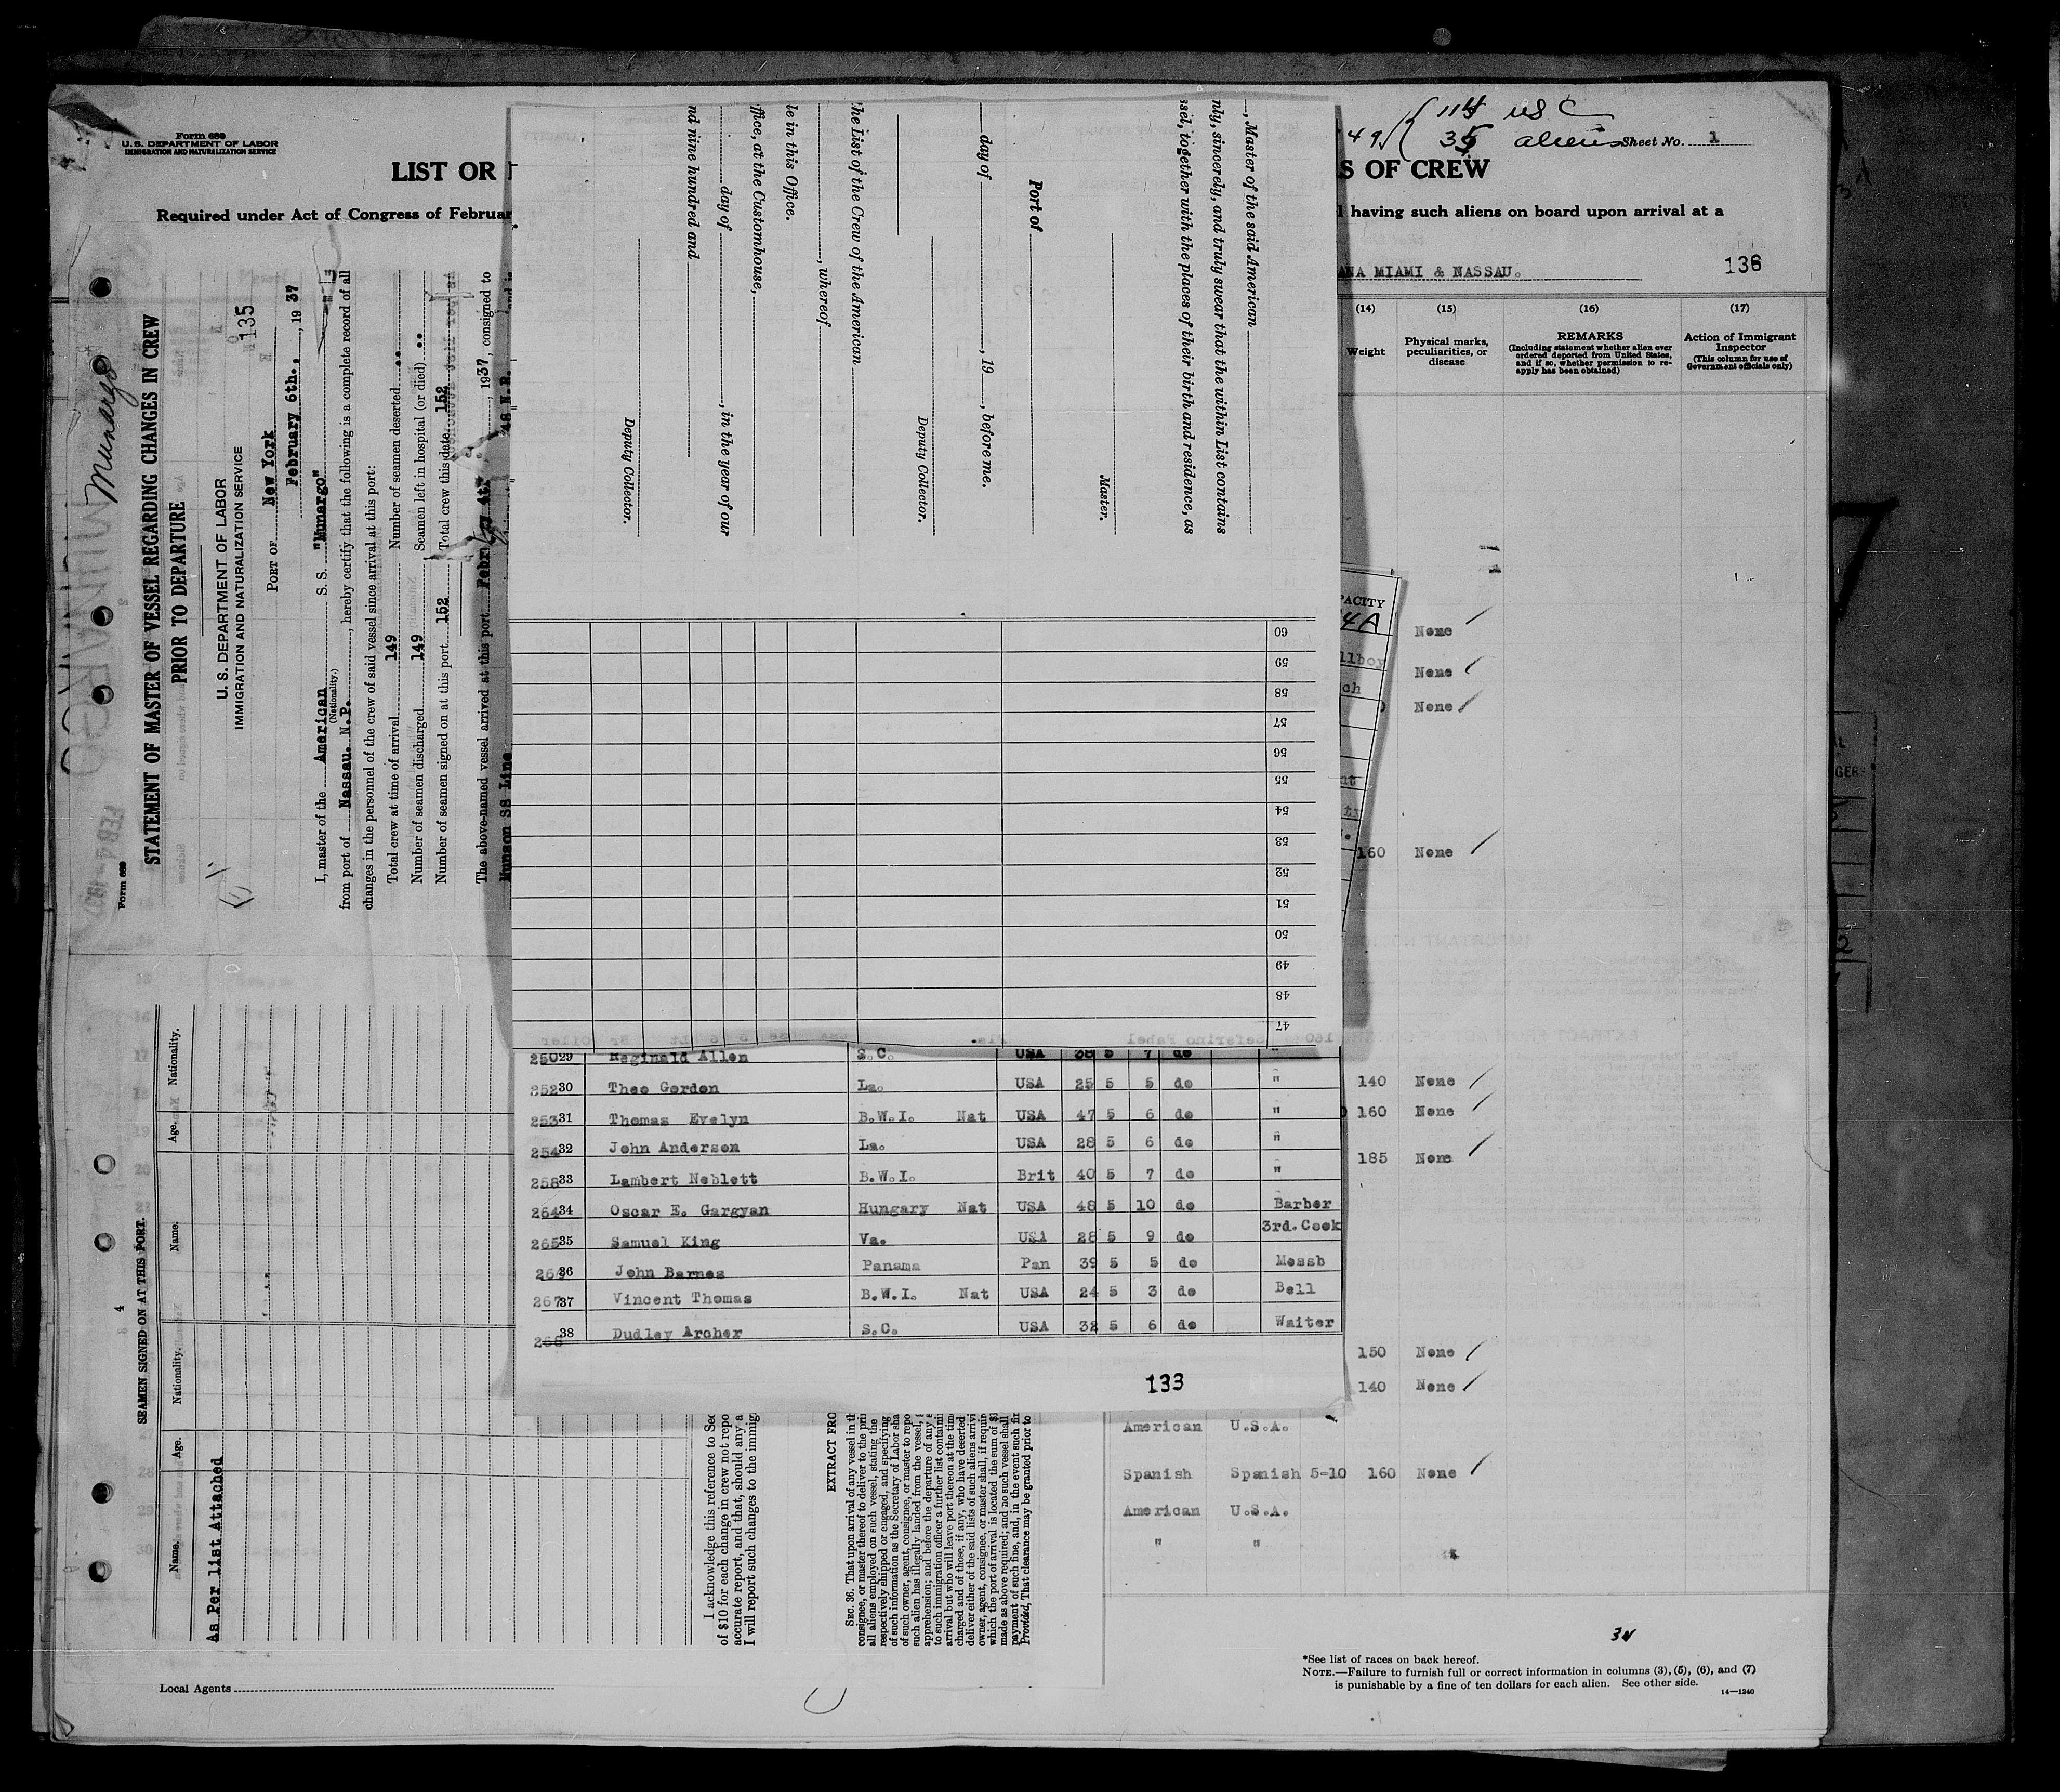 Form 689
U. S. DEPARTMENT OF LABOR
IMMIGRATION AND NATURALIZATION SERVICE
LIST OR
Required under Act of Congress of Februar
49
114 US C
35 aliens
Sheet No. 1
S OF CREW
having such aliens on board upon arrival at a
ANA MIAMI & NASSAU.
136
(14) (15) (16) (17)
Weight
Physical marks, peculiarities, or disease
REMARKS
(Including statement whether alien ever ordered deported from United States, and if so, whether permission to reapply has been obtained)
Action of Immigrant Inspector
(This column for use of Government officials only)
None
None
None
160 None
140 None
160 None
185 None
150 None
140 None
American U.S.A.
Spanish Spanish 5-10 160 None
American U.S.A.
" "
*See list of races on back hereof.
NOTE.—Failure to furnish full or correct information in columns (3), (5), (6), and (7)
is punishable by a fine of ten dollars for each alien. See other side.
14—1240
Local Agents
Munargo
Form 689
STATEMENT OF MASTER OF VESSEL REGARDING CHANGES IN CREW
PRIOR TO DEPARTURE
U. S. DEPARTMENT OF LABOR
IMMIGRATION AND NATURALIZATION SERVICE
135
PORT OF New York
February 6th., 19 37
I, master of the American S. S. "Munargo"
(Nationality.)
from port of Nassau. N.P., hereby certify that the following is a complete record of all
changes in the personnel of the crew of said vessel since arrival at this port:
Total crew at time of arrival 149 Number of seamen deserted ..
Number of seamen discharged 149 Seamen left in hospital (or died) ..
Number of seamen signed on at this port 152 Total crew this date 152
The above-named vessel arrived at this port Febr 4th, 1937, consigned to
Munson SS Line
4
SEAMEN SIGNED ON AT THIS PORT.
Name. Age. Nationality. Name. Age. Nationality.
As Per list Attached
I acknowledge this reference to Sec
of $10 for each change in crew not repo
accurate report, and that, should any a
I will report such changes to the immig
EXTRACT FRO
SEC. 36. That upon arrival of any vessel in th
consignee, or master thereof to deliver to the pri
all aliens employed on such vessel, stating the
respectively shipped or engaged, and specifying
of such information as the Secretary of Labor sha
of such owner, agent, consignee, or master to repo
such alien has illegally landed from the vessel,
apprehension; and before the departure of any
to such immigration officer a further list containi
arrival but who will leave port thereon at the tim
charged and of those, if any, who have deserted
deliver either of the said lists of such aliens arrivi
owner, agent, consignee, or master shall, if requir
which the port of arrival is located the sum of $1
made as above required; and no such vessel shall
payment of such fine, and, in the event such fin
Provided, That clearance may be granted prior to
, Master of the said American
nly, sincerely, and truly swear that the within List contains
ssel, together with the places of their birth and residence, as
Master.
Port of
day of , 19 , before me.
Deputy Collector.
he List of the Crew of the American
, whereof
le in this Office.
ffice, at the Customhouse,
day of , in the year of our
nd nine hundred and
Deputy Collector.
60
59
58
57
56
55
54
53
52
51
50
49
48
47
PACITY
4A
llboy
ch
250 29 Reginald Allen S.C. USA 38 5 7 do "
252 30 Theo Gordon La. USA 25 5 5 do "
253 31 Thomas Evelyn B.W.I. Nat USA 47 5 6 do "
254 32 John Anderson La. USA 28 5 6 do "
258 33 Lambert Neblett B.W.I. Brit 40 5 7 do "
264 34 Oscar E. Gargyan Hungary Nat USA 48 5 10 do Barber
265 35 Samuel King Va. USA 28 5 9 do 3rd. Cook
36 John Barnes Panama Pan 39 5 5 do Messb
267 37 Vincent Thomas B.W.I. Nat USA 24 5 3 do Bell
268 38 Dudley Archer S.C. USA 32 5 6 do Waiter
133